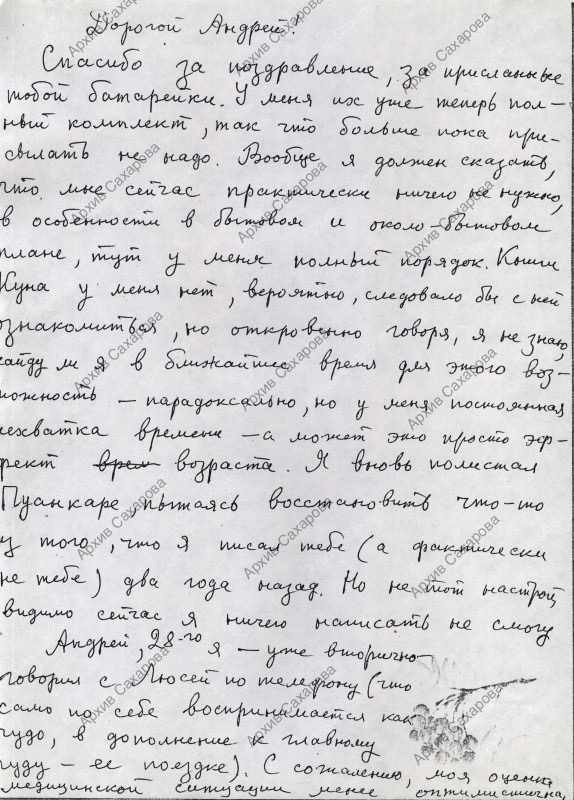 Дорогой Андрей!
Спасибо за поздравление, за присланные
тобой батарейки. У меня их уже теперь пол-
ный комплект, так что больше пока при-
сылать не надо. Вообще я должен сказать,
что мне сейчас практически ничего не нужно,
в особенности в бытовом и около-бытовом
плане, тут у меня полный порядок. Книги
Куна у меня нет, вероятно, следовало бы с ней
ознакомиться, но откровенно говоря, я не знаю,
найду ли я в ближайшее время для этого воз-
можность – парадоксально, но у меня постоянная
нехватка времени – а может это просто эф-
фект врем возраста. Я вновь полистал
Пуанкаре пытаясь восстановить что-то
из того, что я писал тебе (а фактически
не тебе) два года назад. Но не тот настрой,
видимо сейчас я ничего написать не смогу
Андрей, 28-го я – уже вторично
говорил с Люсей по телефону (что
само по себе воспринимается как
чудо, в дополнение к главному
чуду – ее поездке). С сожалению, моя оценка
медицинской ситуации менее оптимистична,
Архив Сахарова